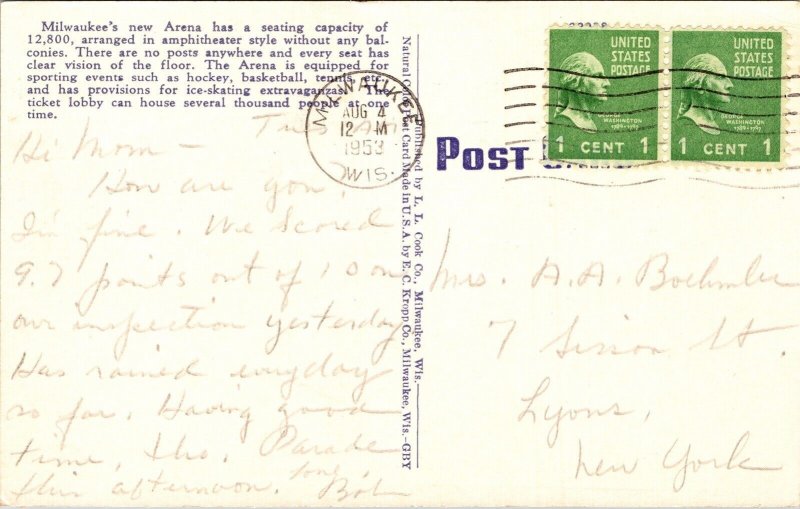 Milwaukee's new Arena has a seating capacity of
12,800, arranged in amphitheater style without any bal-
conies. There are no posts anywhere and every seat has
clear vision of the floor. The Arena is equipped for
sporting events such as hockey, basketball, tennis, etc.
and has provisions for ice-skating extravaganzas. The
ticket lobby can house several thousand people at one
time.
Hi Mom —
How are you,
I'm fine. We scored
9.7 points out of 10 on
our inspection yesterday
Has rained everyday
so far. Having good
time, tho. Parade
this afternoon.
Bob
Published by L. L. Cook Co., Milwaukee, Wis.
Natural Color Post Card Made in U.S.A. by E. C. Kropp Co., Milwaukee, Wis.—GBY
MILWAUKEE
AUG 4
12 M
1953
WIS.
POST
UNITED
STATES
POSTAGE
GEORGE
WASHINGTON
1789-1797
1 CENT 1
UNITED
STATES
POSTAGE
GEORGE
WASHINGTON
1789-1797
1 CENT 1
Mrs. A. A.
7 St.
Lyons,
New York